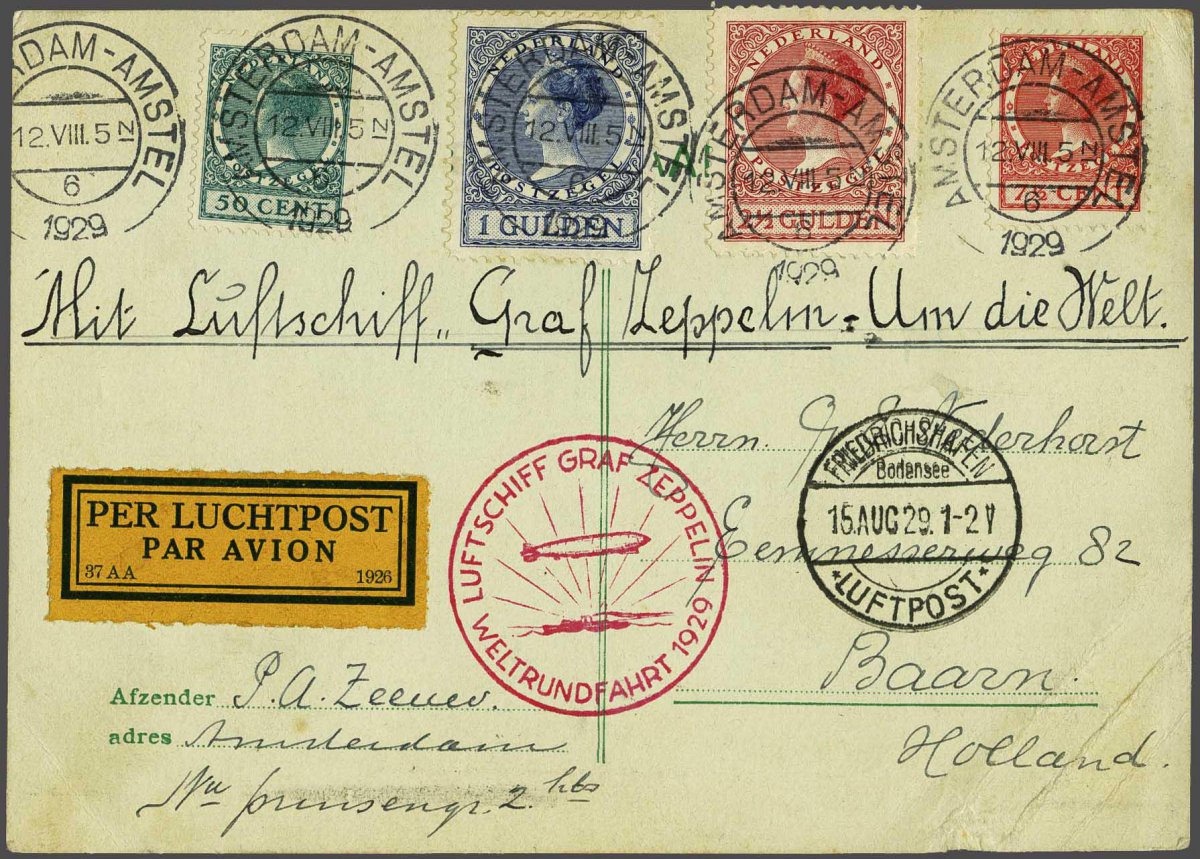 AMSTERDAM-AMSTEL
12.VIII.5 N
6
1929
NEDERLAND
POSTZEGEL
50 CENT
AMSTERDAM-AMSTEL
12.VIII.5 N
6
1929
NEDERLAND
POSTZEGEL
1 GULDEN
AMSTERDAM-AMSTEL
12.VIII.5 N
6
1929
NEDERLAND
POSTZEGEL
2½ GULDEN
AMSTERDAM-AMSTEL
12.VIII.5 N
6
1929
NEDERLAND
POSTZEGEL
7½ CENT
AMSTERDAM-AMSTEL
12.VIII.5 N
6
1929
Mit Luftschiff „Graf Zeppelin - Um die Welt.
Herrn. G. E. Nederhorst
Eemnesserweg 82
Baarn.
Holland.
FRIEDRICHSHAFEN
Bodensee
15.AUG 29. 1-2 V
*LUFTPOST*
PER LUCHTPOST
PAR AVION
37 A A 1926
LUFTSCHIFF GRAF ZEPPELIN
WELTRUNDFAHRT 1929
Afzender P. A. Zeeuw.
adres Amsterdam
prinsengr. 2 hs